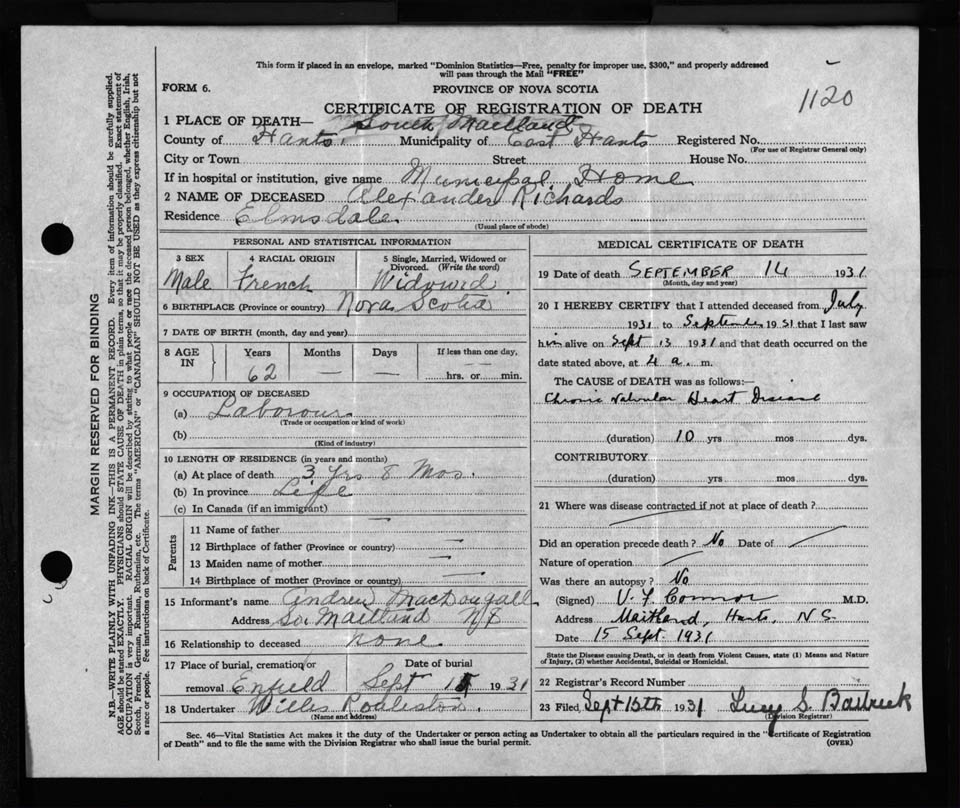 This form if placed in an envelope, marked "Dominion Statistics—Free, penalty for improper use, $300," and properly addressed
will pass through the Mail "FREE"
FORM 6.
PROVINCE OF NOVA SCOTIA
1120
CERTIFICATE OF REGISTRATION OF DEATH
1 PLACE OF DEATH— South Maitland
County of Hants. Municipality of East Hants Registered No.
(For use of Registrar General only)
City or Town Street House No.
If in hospital or institution, give name Municipal Home
2 NAME OF DECEASED Alexander Richards
Residence Elmsdale
(Usual place of abode)
PERSONAL AND STATISTICAL INFORMATION
3 SEX 4 RACIAL ORIGIN 5 Single, Married, Widowed or
Divorced. (Write the word)
Male French Widowed
6 BIRTHPLACE (Province or country) Nova Scotia
7 DATE OF BIRTH (month, day and year)
8 AGE IN Years Months Days If less than one day,
62 — — — hrs. or min.
9 OCCUPATION OF DECEASED
(a) Labourour
(Trade or occupation or kind of work)
(b)
(Kind of industry)
10 LENGTH OF RESIDENCE (in years and months)
(a) At place of death 3 Yrs 8 Mos.
(b) In province Life
(c) In Canada (if an immigrant)
Parents
11 Name of father —
12 Birthplace of father (Province or country) —
13 Maiden name of mother —
14 Birthplace of mother (Province or country) —
15 Informant's name Andrew MacDougall
Address So. Maitland NS
16 Relationship to deceased none
17 Place of burial, cremation or Date of burial
removal Enfield Sept 15 1931
18 Undertaker Willis
(Name and address)
MEDICAL CERTIFICATE OF DEATH
19 Date of death SEPTEMBER 14 1931
(Month, day and year)
20 I HEREBY CERTIFY that I attended deceased from July
1931 to September 1931 that I last saw
him alive on Sept 13 1931 and that death occurred on the
date stated above, at 4 a. m.
The CAUSE OF DEATH was as follows:—
Chronic Valvular Heart Disease
(duration) 10 yrs mos dys.
CONTRIBUTORY
(duration) yrs mos dys.
21 Where was disease contracted if not at place of death?
Did an operation precede death? No Date of
Nature of operation
Was there an autopsy? No
(Signed) V. Y. Connor M.D.
Address Maitland, Hants, N S.
Date 15 Sept. 1931
State the Disease causing Death, or in death from Violent Causes, state (1) Means and Nature
of Injury, (2) whether Accidental, Suicidal or Homicidal.
22 Registrar's Record Number
23 Filed, Sept 15th 1931 Lucy S.
(Division Registrar)
Sec. 46—Vital Statistics Act makes it the duty of the Undertaker or person acting as Undertaker to obtain all the particulars required in the "Certificate of Registration
of Death" and to file the same with the Division Registrar who shall issue the burial permit.
(OVER)
MARGIN RESERVED FOR BINDING
N.B.—WRITE PLAINLY WITH UNFADING INK—THIS IS A PERMANENT RECORD. Every item of information should be carefully supplied.
AGE should be stated EXACTLY. PHYSICIANS should STATE CAUSE OF DEATH in plain terms, so that it may be properly classified. Exact statement of
OCCUPATION is very important. RACIAL ORIGIN will be described by stating to what people or race the deceased person belonged, whether English, Irish,
Scotch, French, German, Russian, Ruthenian, etc. The terms "AMERICAN" or "CANADIAN" SHOULD NOT BE USED as they express citizenship but not
a race or people. See instructions on back of Certificate.